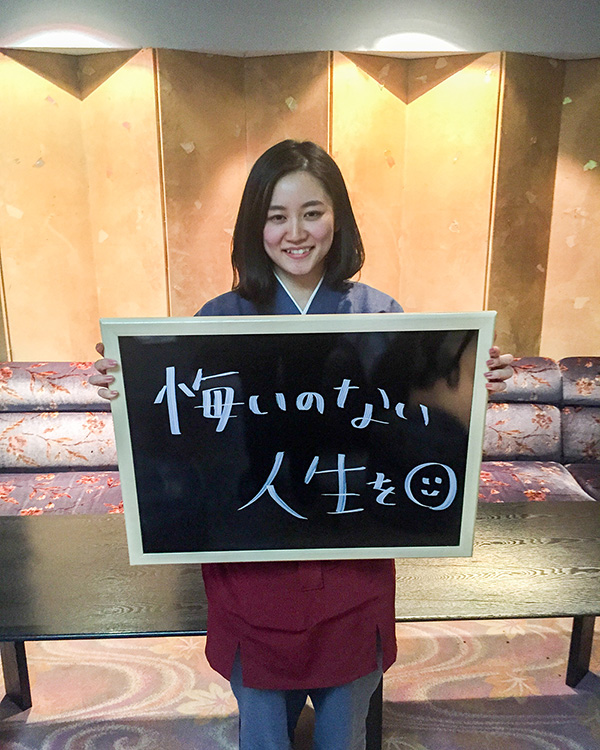 悔いのない
人生を☺